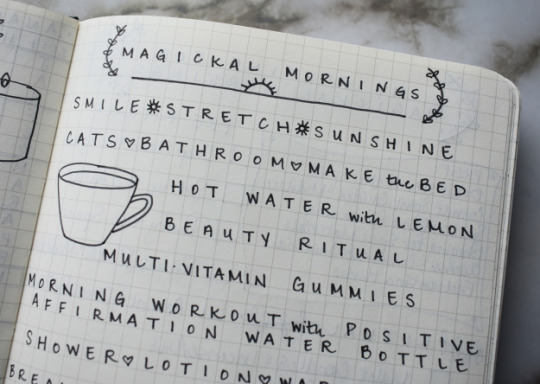 MAGICKAL MORNINGS
SMILE☀STRETCH☀SUNSHINE
CATS♡BATHROOM♡MAKE the BED
HOT WATER with LEMON
BEAUTY RITUAL
MULTI·VITAMIN GUMMIES
MORNING WORKOUT with POSITIVE
AFFIRMATION WATER BOTTLE
SHOWER♡LOTION♡